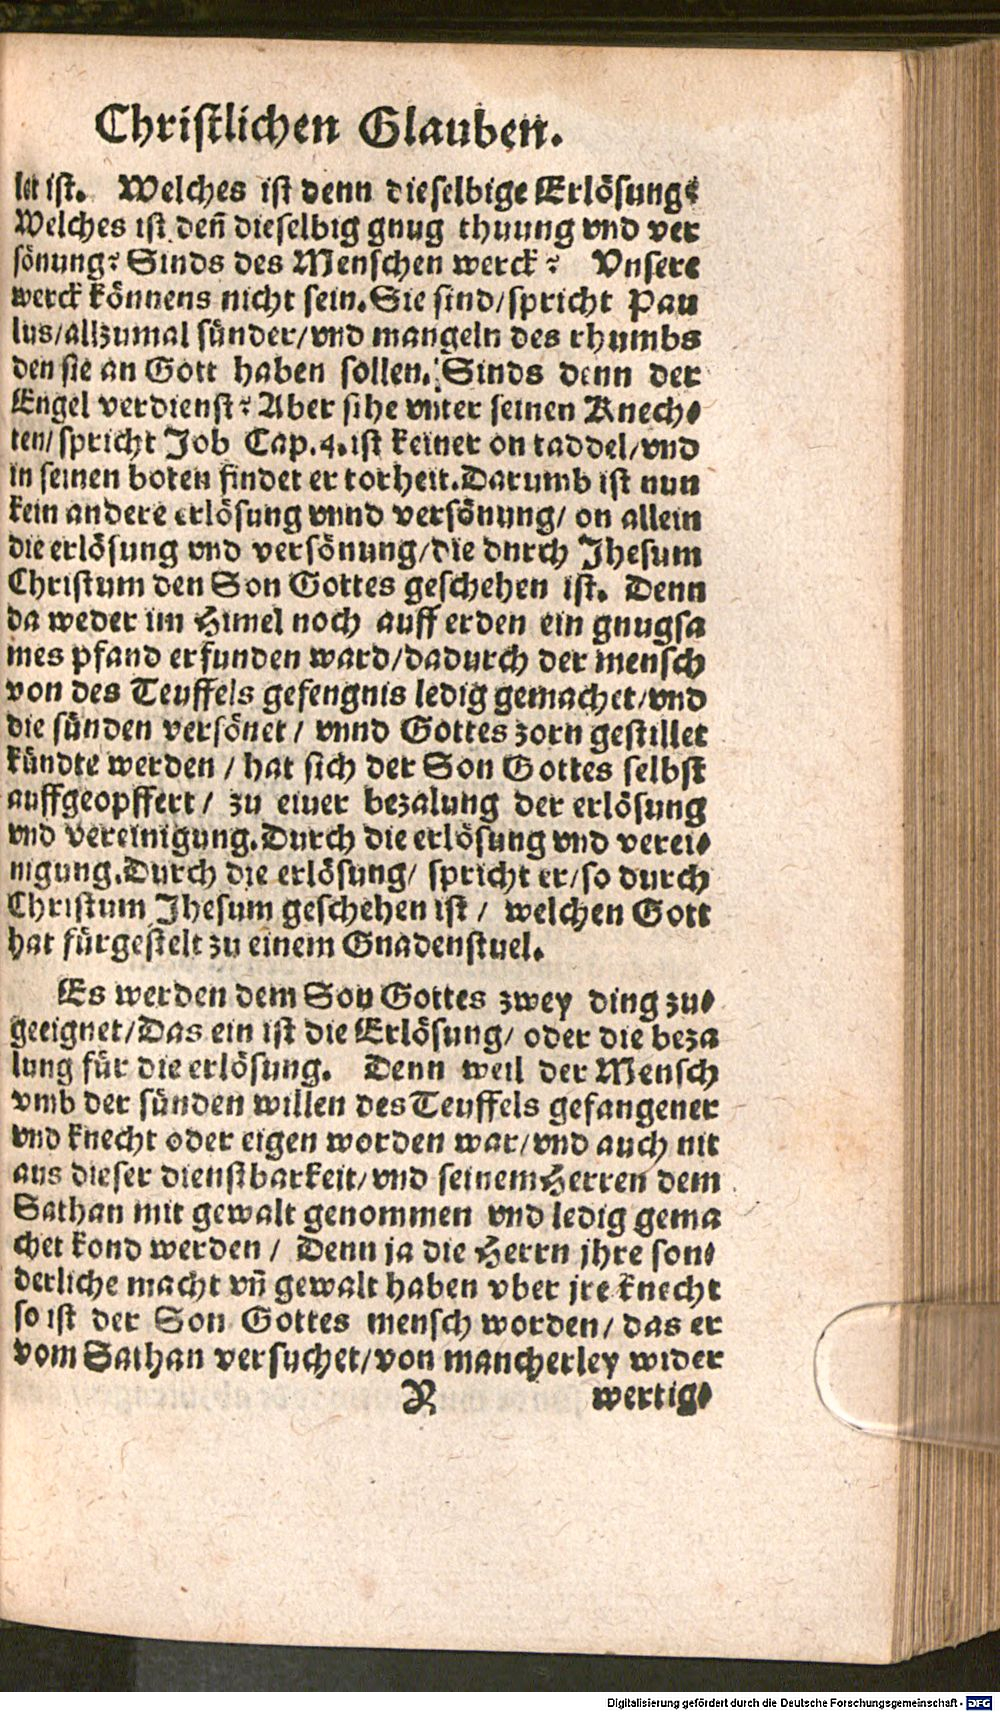 Christlichen Glauben.
let ist. Welches ist denn dieselbige Erlösung?
Welches ist den̄ dieselbig gnug thuung vnd ver
sönung? Sinds des Menschen werck? Vnsere
werck können​s nicht sein. Sie sind/ spricht Pau
lus/ allzumal sünder/ vnd mangeln des rhumbs
den sie an Gott haben sollen. Sinds denn der
Engel verdienst? Aber sihe vnter seinen Knech⸗
ten/ spricht Job Cap. 4. ist keiner on taddel/ vnd
in seinen boten findet er torheit. Darumb ist nun
kein andere erlösung vnnd versönung/ on allein
die erlösung vnd versönung/ die durch Jhesum
Christum den Son Gottes geschehen ist. Denn
da weder im Himel noch auff erden ein gnugsa
mes pfand erfunden ward/ dadurch der mensch
von des Teuffels gefengnis ledig gemachet/ vnd
die sünden versönet/ vnnd Gottes zorn gestillet
kündte werden/ hat sich der Son Gottes selbst
auffgeopffert/ zu einer bezalung der erlösung
vnd vereinigung. Durch die erlösung vnd verei⸗
nigung. Durch die erlösung/ spricht er/ so durch
Christum Jhesum geschehen ist/ welchen Gott
hat fürgestelt zu einem Gnadenstuel.
Es werden dem Son Gottes zwey ding zu⸗
geeignet/ Das ein ist die Erlösung/ oder die beza
lung für die erlösung. Denn weil der Mensch
vmb der sünden willen des Teuffels gefangener
vnd knecht oder eigen worden war/ vnd auch nit
aus dieser dienstbarkeit/ vnd seinem Herren dem
Sathan mit gewalt genommen vnd ledig gema
chet kond werden/ Denn ja die Herrn jhre son⸗
derliche macht vn̄ gewalt haben vber jre knecht
so ist der Son Gottes mensch worden/ das er
vom Sathan versuchet/ von mancherley wider
R wertig⸗
Digitalisierung gefördert durch die Deutsche Forschungsgemeinschaft - DFG